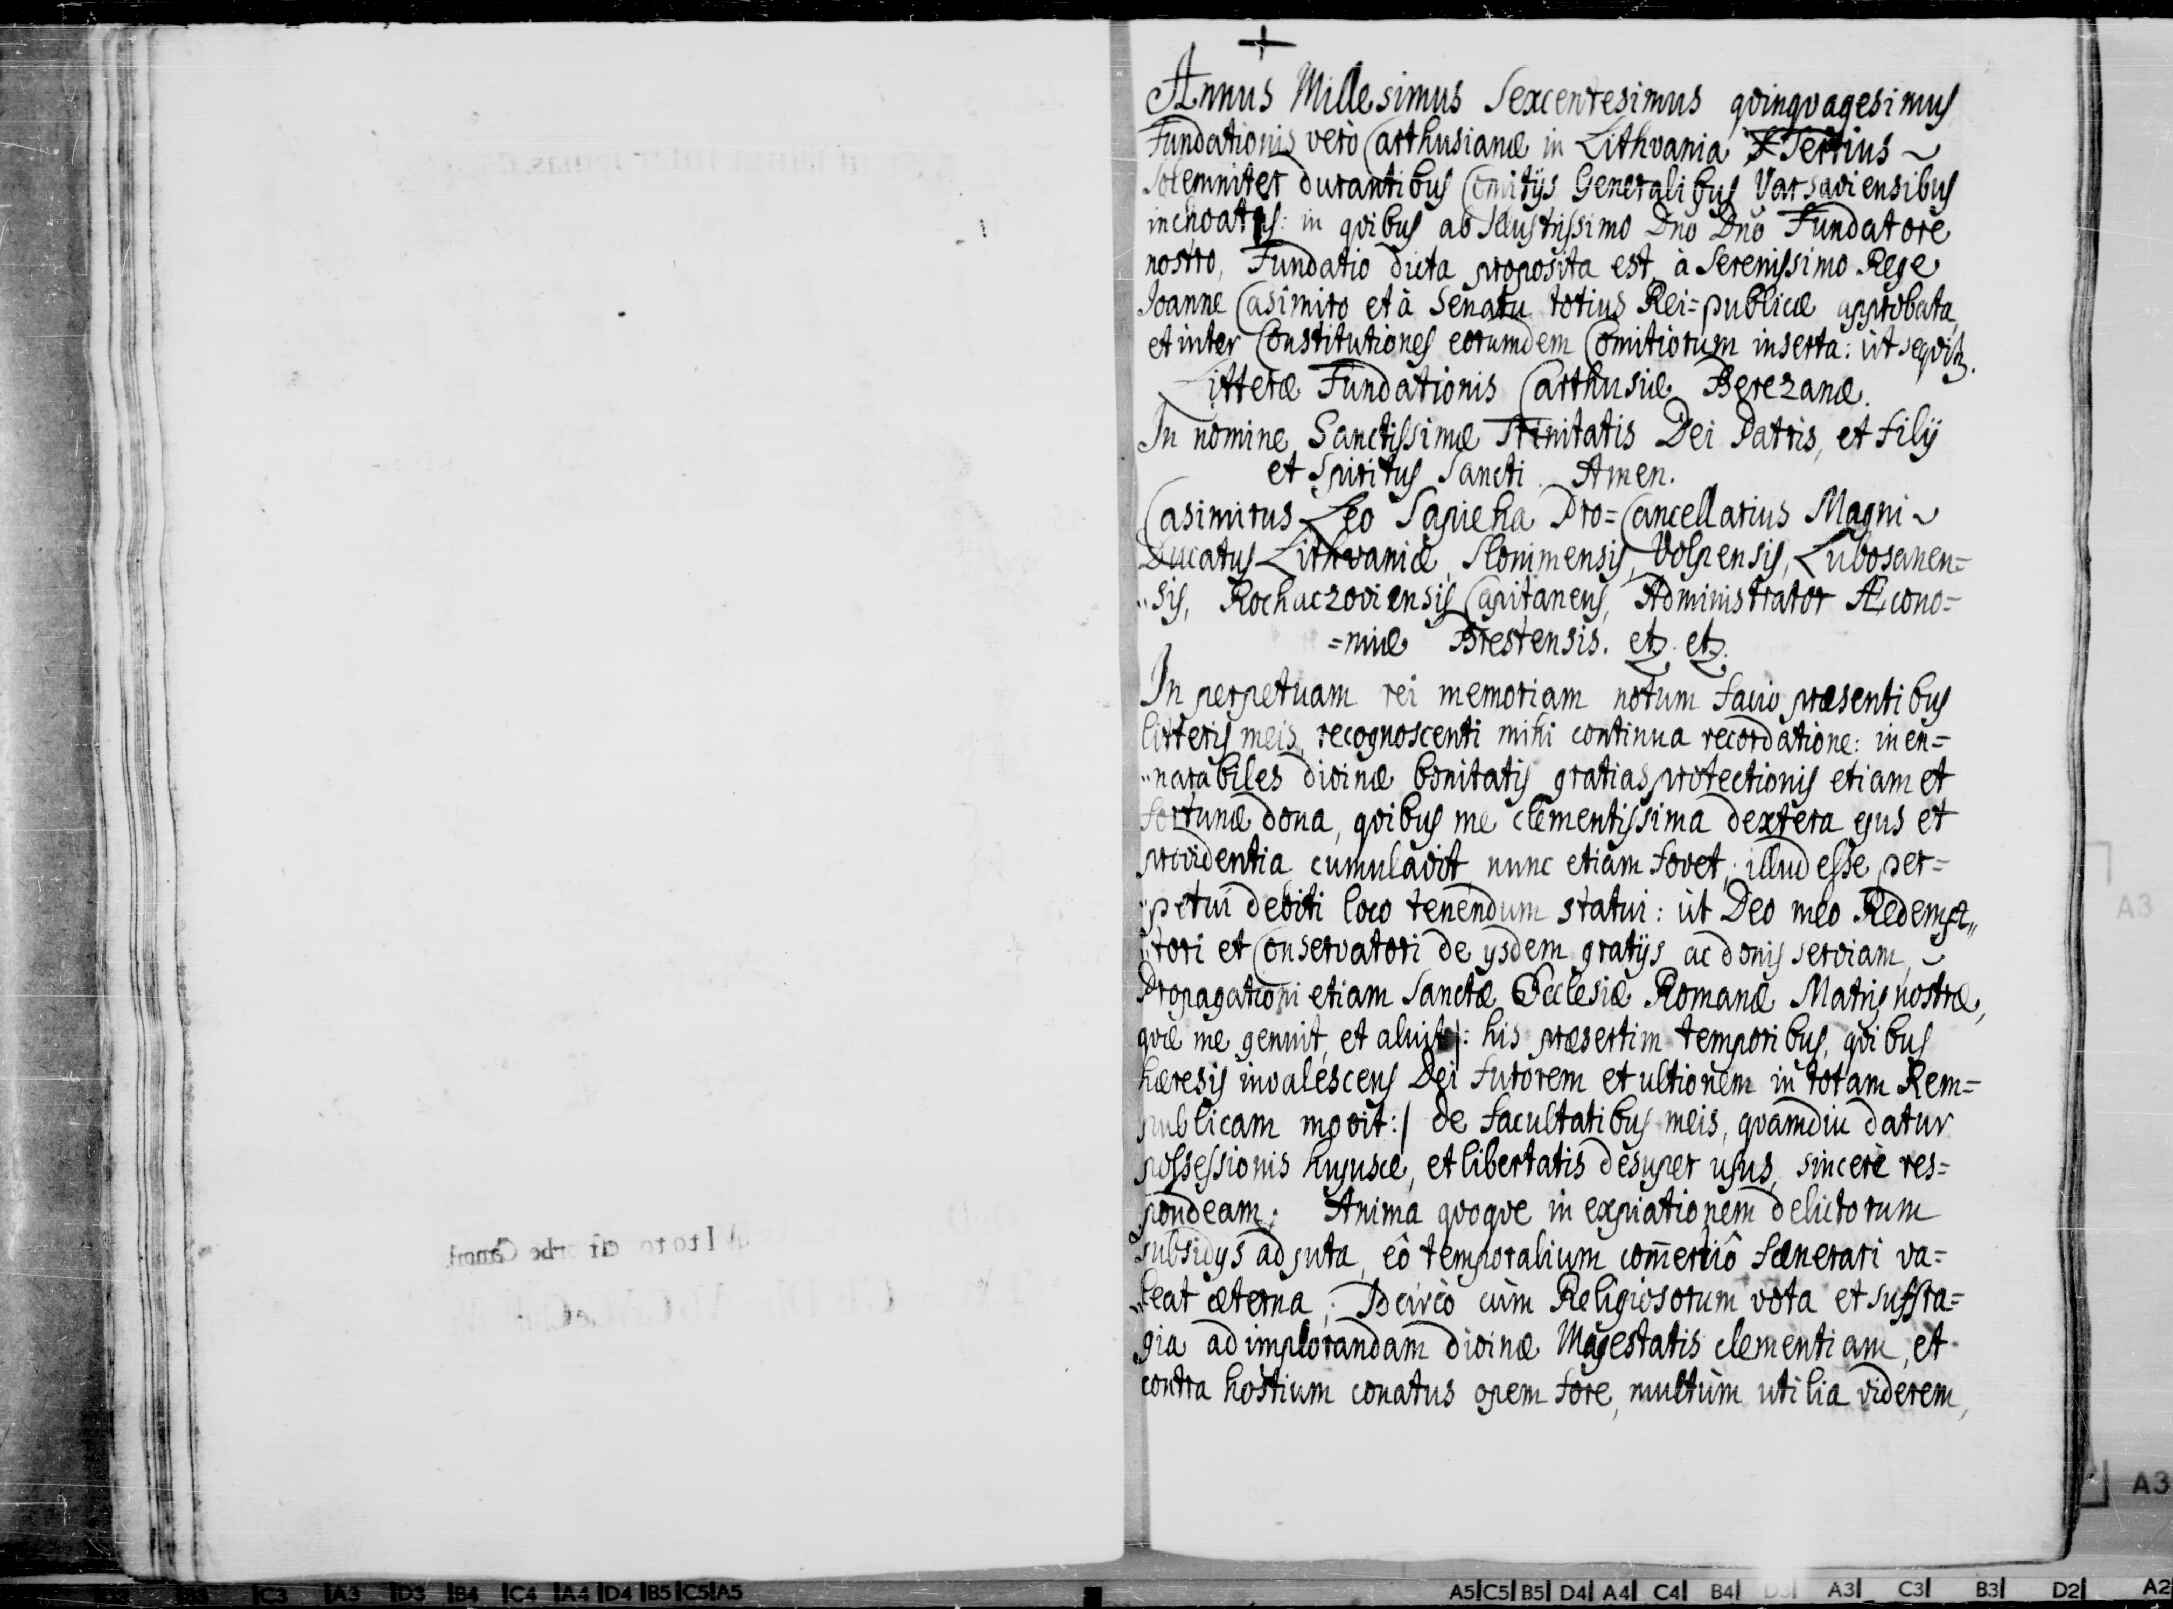 Annus Millesimus Sexcentesimus qvinqvagesimus
Fundationis verò Carthusianæ in Lithvania Tertius
Solemniter durantibus Comitijs Generalibus Varsaviensibus
inchoatus: in qvibus ab Illustrissimo Dno Dno Fundatore
nostro, Fundatio dicta proposita est, à Serenissimo Rege
Joanne Casimiro et à Senatu totius Rei=publicæ approbata,
et inter Constitutiones eorumdem Comitiorum inserta: ut seqvitr.
Litteræ Fundationis Carthusiæ Berezanæ.
In nomine Sanctissimæ Trinitatis Dei Patris, et Filij
et Spiritus Sancti. Amen.
Casimirus Leo Sapieha Pro=Cancellarius Magni
Ducatus Lithvaniæ, Slonimensis, Volpensis, Lubosanen=
sis, Rochaczoviensis Capitaneus, Administrator Æcono=
=miæ Brestensis. etz. etz.
In perpetuam rei memoriam notum facio præsentibus
litteris meis, recognoscenti mihi continua recordatione: inen=
narabiles divinæ bonitatis gratias, protectionis etiam et
fortunæ dona, qvibus me clementissima dextera ejus et
providentia cumulavit, nunc etiam fovet; illud esse per=
petui debiti loco tenendum statui: ut Deo meo Redemp„
tori et Conservatori de ijsdem gratijs ac donis serviam,
Propagationi etiam Sanctæ Ecclesiæ Romanæ Matris nostræ,
qvæ me genuit, et aluit |: his præsertim temporibus, qvibus
hæresis invalescens Dei furorem et ultionem in totam Rem=
publicam movit :| de facultatibus meis, qvamdiu datur
possessionis hujusce, et libertatis desuper usus, sincerè res=
pondeam. Anima qvoqve in expiationem delictorum
subsidijs adjuta, eô temporalium com̄erciô fænerari va=
leat æterna; Idcircò cùm Religiosorum vota et suffra=
gia ad implorandam divinæ Majestatis clementiam, et
contra hostium conatus opem fore, multùm utilia viderem,
A3
A3
C3 A3 D3 B4 C4 A4 D4 B5 C5 A5
A5 C5 B5 D4 A4 C4 B4 D3 A3 C3 B3 D2 A2